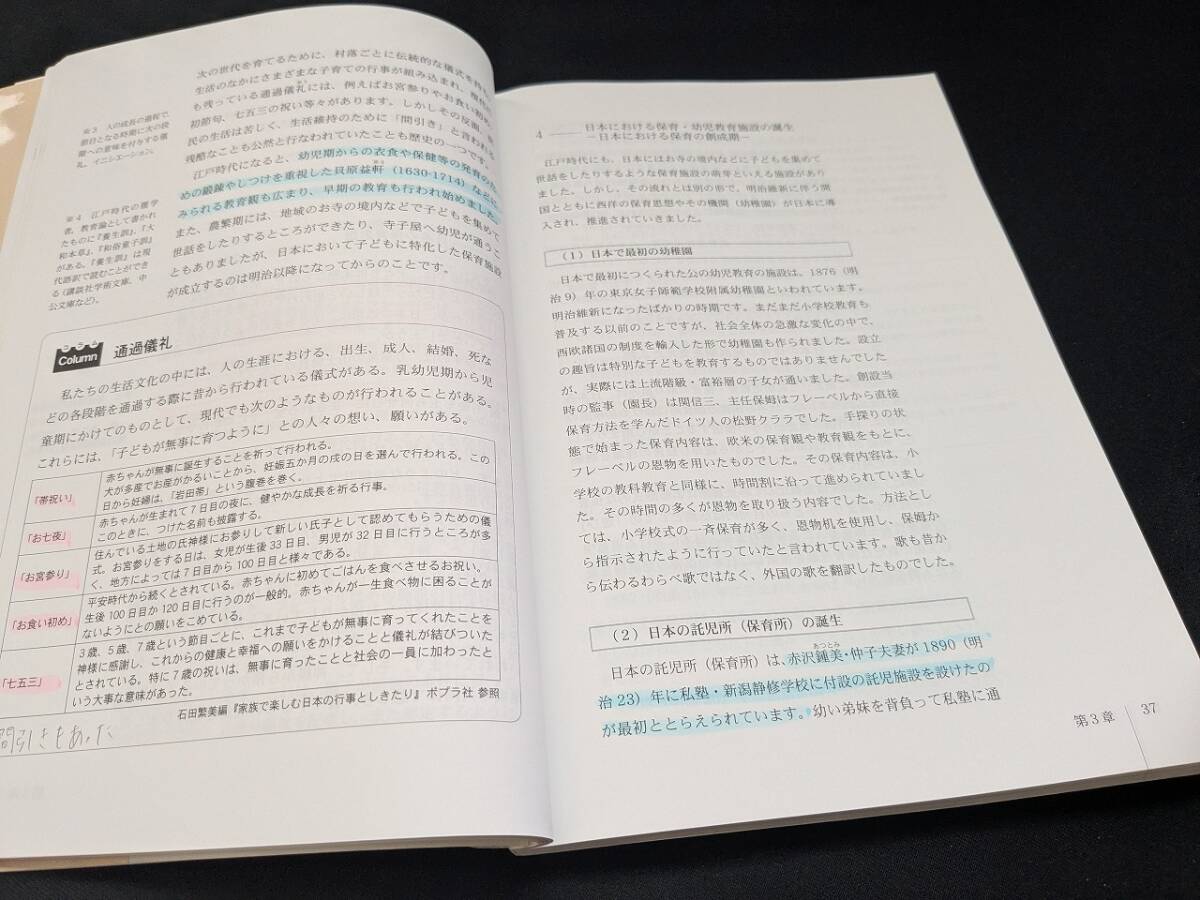 次の世代を育てるために、村落ごとに伝統的な儀式を持ち
生活のなかにさまざまな子育ての行事が組み込まれ、
も残っている通過儀礼には、例えばお宮参りやお食い初め、
初節句、七五三の祝い等々があります。しかしその反面、
民の生活は苦しく、生活維持のために「間引き」と言われる
残酷なことも公然と行なわれていたことも歴史の一つです。
江戸時代になると、幼児期からの衣食や保健等の発育のた
めの鍛錬やしつけを重視した貝原益軒（1630-1714）などに
みられる教育観も広まり、早期の教育も行われ始めました。
また、農繁期には、地域のお寺の境内などで子どもを集めて
世話をしたりするところができたり、寺子屋へ幼児が通うこ
ともありましたが、日本において子どもに特化した保育施設
が成立するのは明治以降になってからのことです。
※3 人の成長の過程で、
節目となる時期に次の段
階への意味を付与する儀
礼。イニシエーション。
※4 江戸時代の儒学
者。教育論として書かれ
たものに『養生訓』、『大
和本草』、『和俗童子訓』
がある。『養生訓』は現
代語訳で読むことができ
る（講談社学術文庫、中
公文庫など）。
コラム
Column
通過儀礼
私たちの生活文化の中には、人の生涯における、出生、成人、結婚、死な
どの各段階を通過する際に昔から行われている儀式がある。乳幼児期から児
童期にかけてのものとして、現代でも次のようなものが行われることがある。
これらには、「子どもが無事に育つように」との人々の想い、願いがある。
「帯祝い」
赤ちゃんが無事に誕生することを祈って行われる。
犬が多産でお産がかるいことから、妊娠五か月の戌の日を選んで行われる。この
日から妊婦は、「岩田帯」という腹巻を巻く。
「お七夜」
赤ちゃんが生まれて7日目の夜に、健やかな成長を祈る行事。
このときに、つけた名前も披露する。
「お宮参り」
住んでいる土地の氏神様にお参りして新しい氏子として認めてもらうための儀
式。お宮参りをする日は、女児が生後33日目、男児が32日目に行うところが多
く、地方によっては7日目から100日目と様々である。
「お食い初め」
平安時代から続くとされている。赤ちゃんに初めてごはんを食べさせるお祝い。
生後100日目か120日目に行うのが一般的。赤ちゃんが一生食べ物に困ることが
ないようにとの願いをこめている。
「七五三」
3歳、5歳、7歳という節目ごとに、これまで子どもが無事に育ってくれたことを
神様に感謝し、これからの健康と幸福への願いをかけることと儀礼が結びついた
とされている。特に7歳の祝いは、無事に育ったことと社会の一員に加わったと
いう大事な意味があった。
石田繁美編『家族で楽しむ日本の行事としきたり』ポプラ社 参照
間引きもあった
4 ―― 日本における保育・幼児教育施設の誕生
－日本における保育の創成期－
江戸時代にも、日本にはお寺の境内などに子どもを集めて
世話をしたりするような保育施設の萌芽といえる施設があり
ました。しかし、その流れとは別の形で、明治維新に伴う開
国とともに西洋の保育思想やその機関（幼稚園）が日本に導
入され、推進されていきました。
（1）日本で最初の幼稚園
日本で最初につくられた公の幼児教育の施設は、1876（明
治9）年の東京女子師範学校附属幼稚園といわれています。
明治維新になったばかりの時期です。まだまだ小学校教育も
普及する以前のことですが、社会全体の急激な変化の中で、
西欧諸国の制度を輸入した形で幼稚園も作られました。設立
の趣旨は特別な子どもを教育するものではありませんでした
が、実際には上流階級・富裕層の子女が通いました。創設当
時の監事（園長）は関信三、主任保姆はフレーベルから直接
保育方法を学んだドイツ人の松野クララでした。手探りの状
態で始まった保育内容は、欧米の保育観や教育観をもとに、
フレーベルの恩物を用いたものでした。その保育内容は、小
学校の教科教育と同様に、時間割に沿って進められていまし
た。その時間の多くが恩物を取り扱う内容でした。方法とし
ては、小学校式の一斉保育が多く、恩物机を使用し、保姆か
ら指示されたように行っていたと言われています。歌も昔か
ら伝わるわらべ歌ではなく、外国の歌を翻訳したものでした。
（2）日本の託児所（保育所）の誕生
あつとみ
日本の託児所（保育所）は、赤沢鍾美・仲子夫妻が1890（明
治23）年に私塾・新潟静修学校に付設の託児施設を設けたの
が最初ととらえられています。幼い弟妹を背負って私塾に通
第3章 37